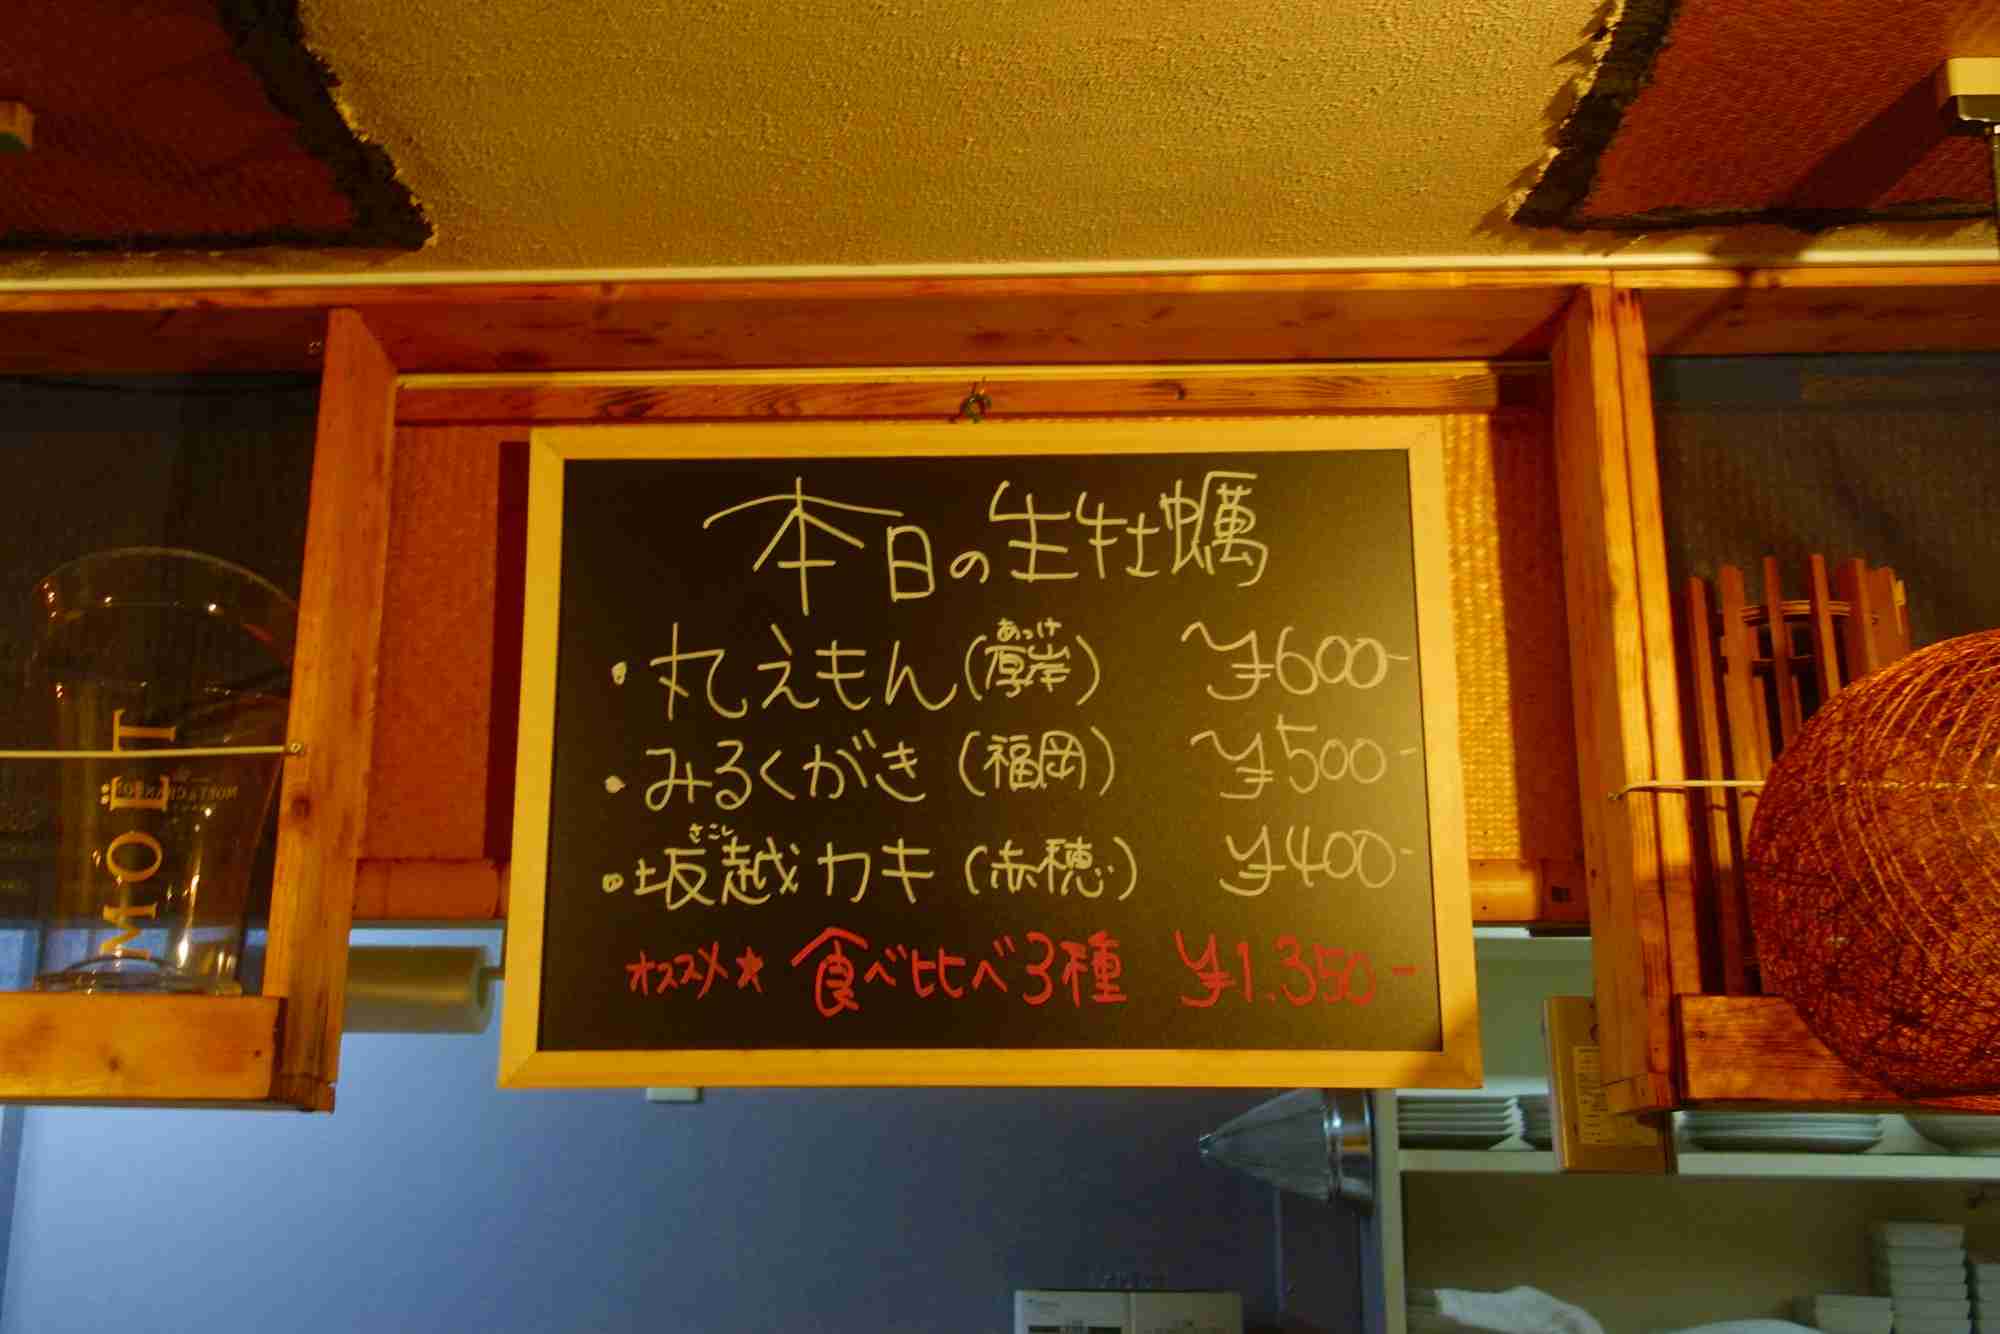 本日の生牡蠣
・丸えもん(厚岸) ¥600-
あっけ
・みるくがき(福岡) ¥500-
・坂越カキ(赤穂) ¥400-
さこし
オススメ★ 食べ比べ3種 ¥1.350-
MOËT
MOËT & CHANDON